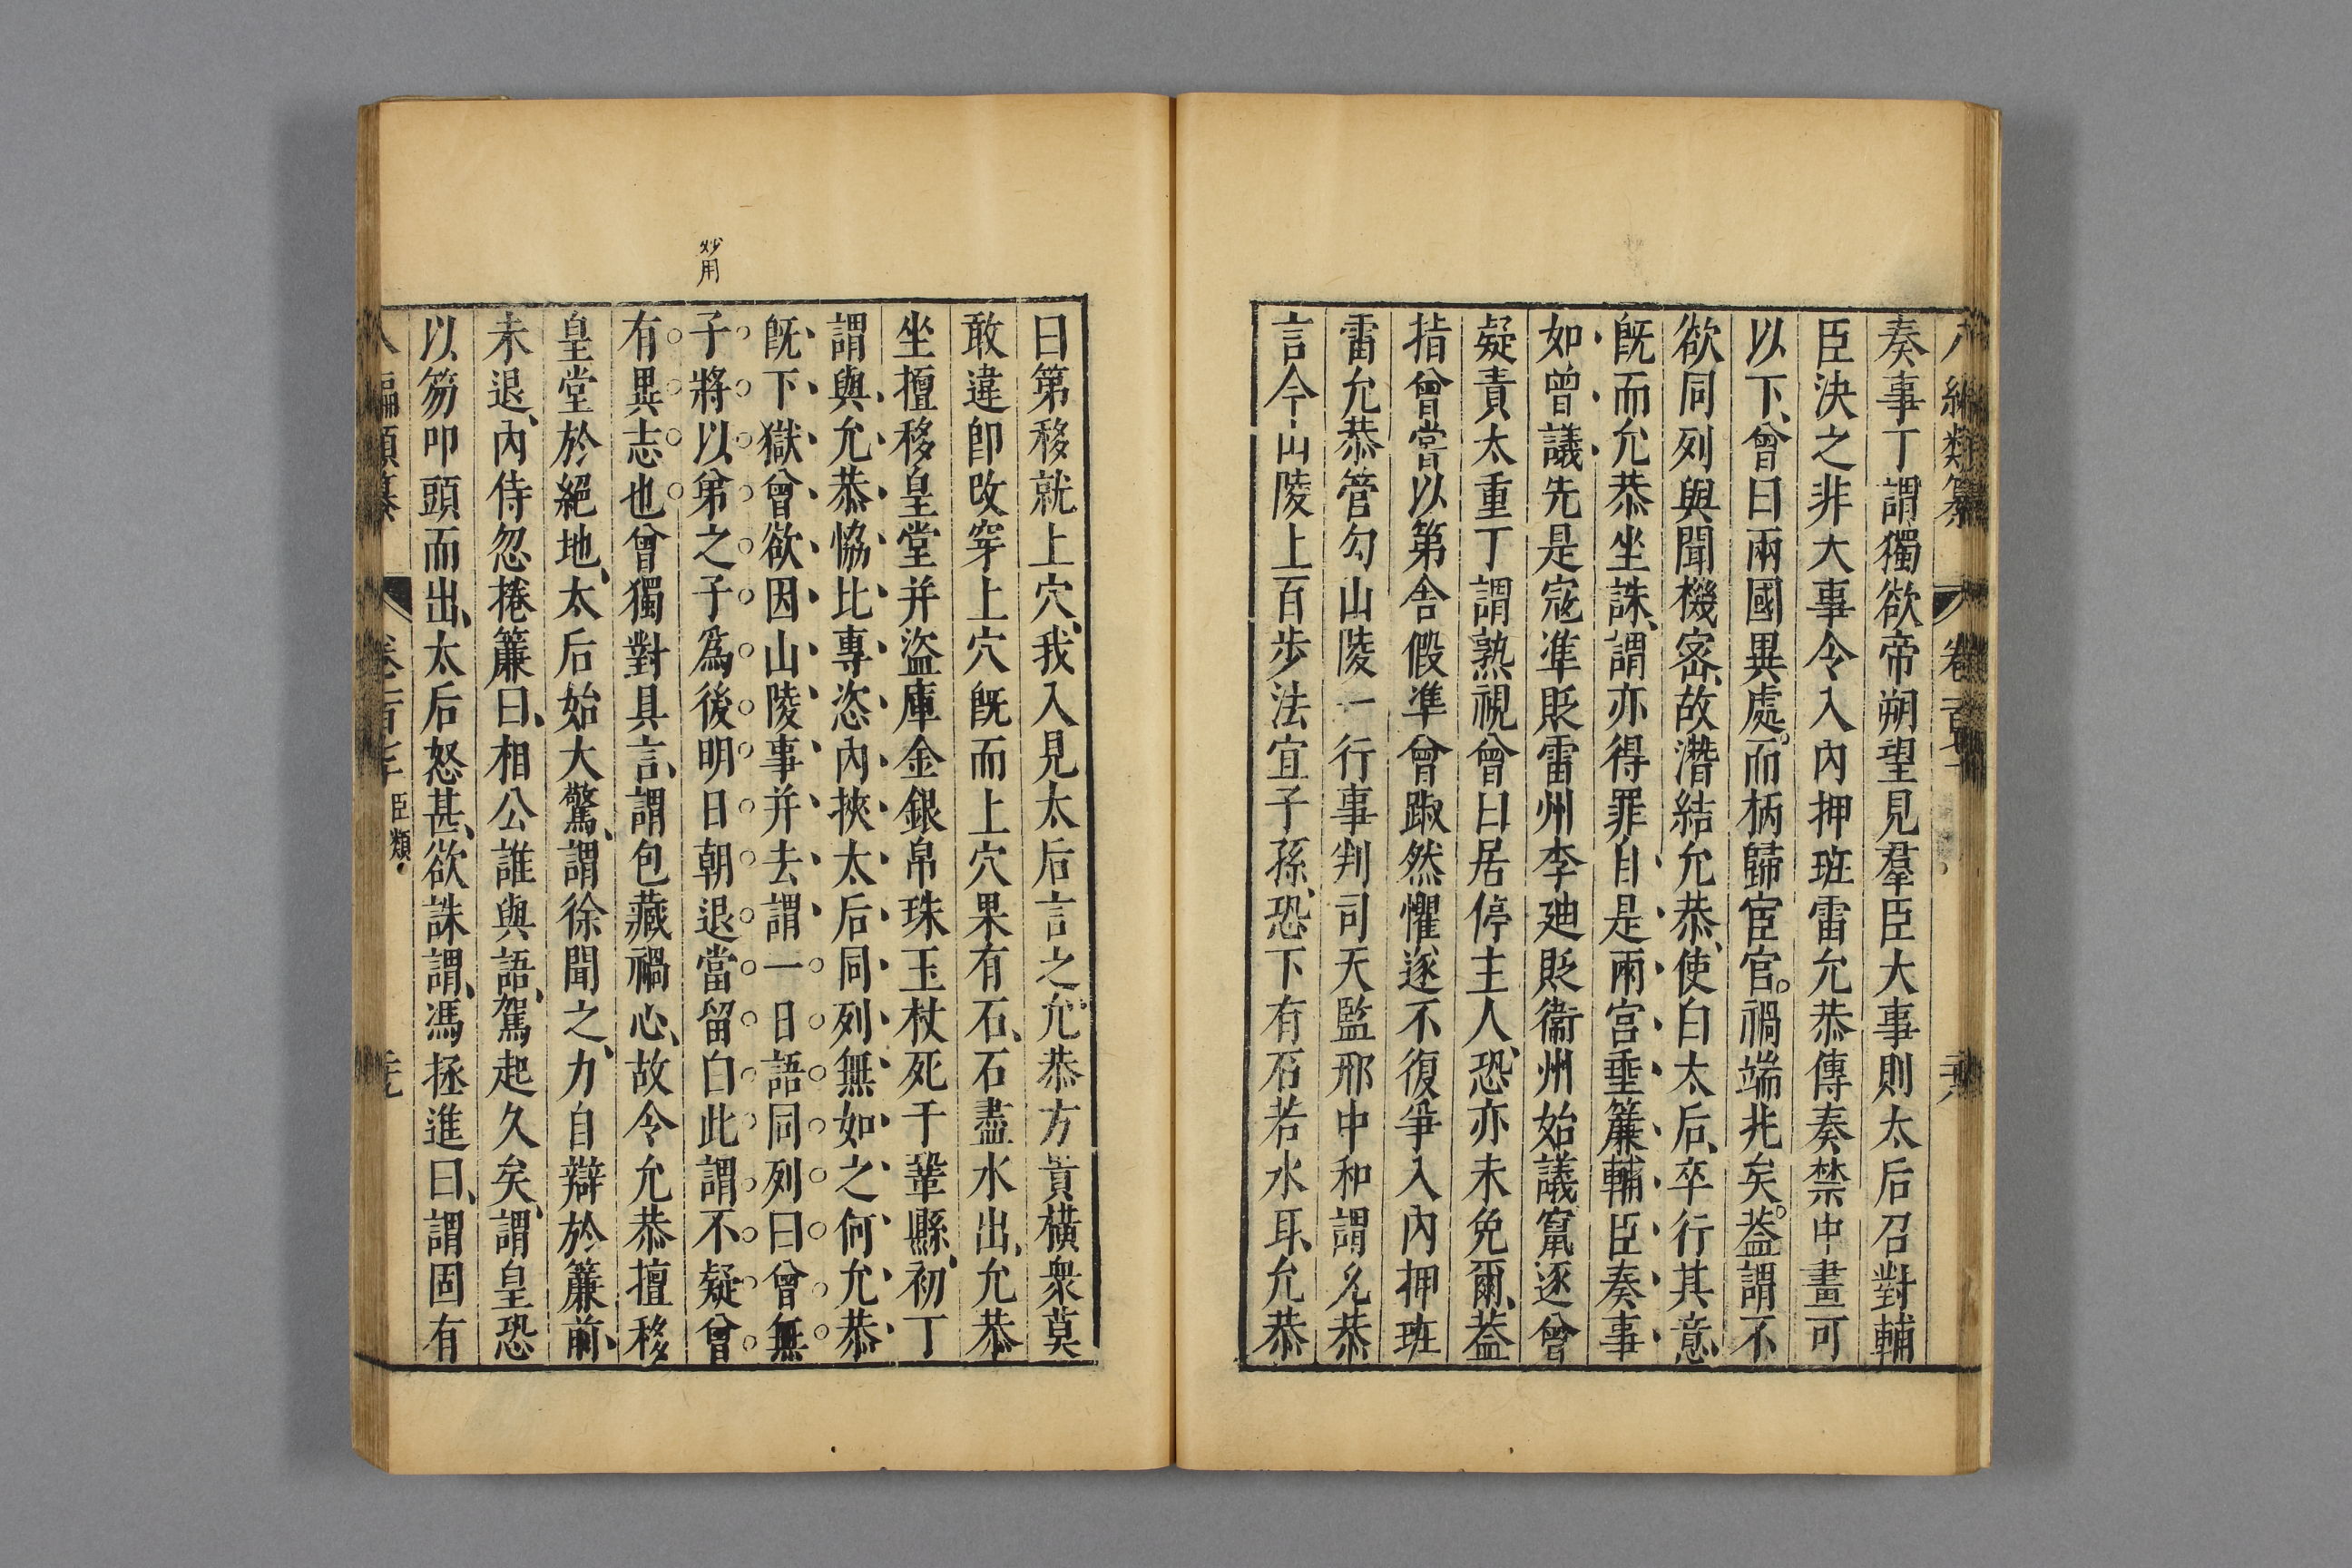 奏事丁謂獨欲帝朔望見羣臣大事則太后召對輔
臣決之非大事令入內押班雷允恭傳奏禁中畫可
以下、曾曰兩國異處。而柄歸宦官。禍端兆矣。葢謂不
欲同列與聞機宻、故潛結允恭、使白太后、卒行其意、
旣而允恭坐誅、謂亦得罪自是兩宮垂簾輔臣奏事
如曾議先是寇凖貶雷州李廸貶衞州始議竄逐曾
疑責太重丁謂熟視曾曰居停主人、恐亦未免爾、葢
指曾嘗以第舍假凖曾踧然懼遂不復爭入內押班
雷允恭管勾山陵一行事判司天監邢中和謂允恭
言今山陵上百步法宜子孫、恐下有石若水耳、允恭
曰第移就上穴、我入見太后言之、允恭方貴橫衆莫
敢違卽改穿上穴旣而上穴果有石、石盡水出、允恭
坐擅移皇堂并盜庫金銀帛珠玉杖死于鞏縣、初丁
謂與允恭恊比專恣內挾太后同列無如之何允恭
旣下獄曾欲因山陵事并去謂一日語同列曰曾無
妙用
子將以弟之子爲後明日朝退當留白此謂不疑曾
有異志也曾獨對具言、謂包藏禍心、故令允恭擅移
皇堂於絕地、太后始大驚、謂徐聞之、力自辯於簾前、
未退、內侍忽捲簾曰、相公誰與語、駕起久矣、謂皇恐
以笏叩頭而出、太后怒甚、欲誅謂、馮拯進曰、謂固有
臣類